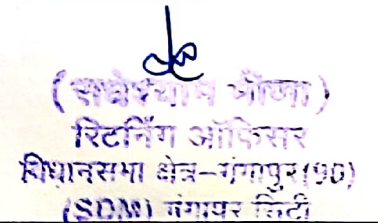 ( राधेश्याम मीणा )
रिटर्निंग ऑफिसर
विधानसभा क्षेत्र-गंगापुर(90)
(SDM) गंगापुर सिटी